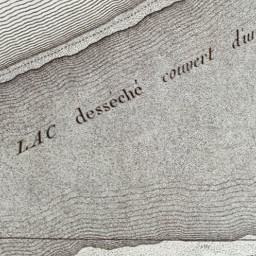 LAC desséché couvert d'un